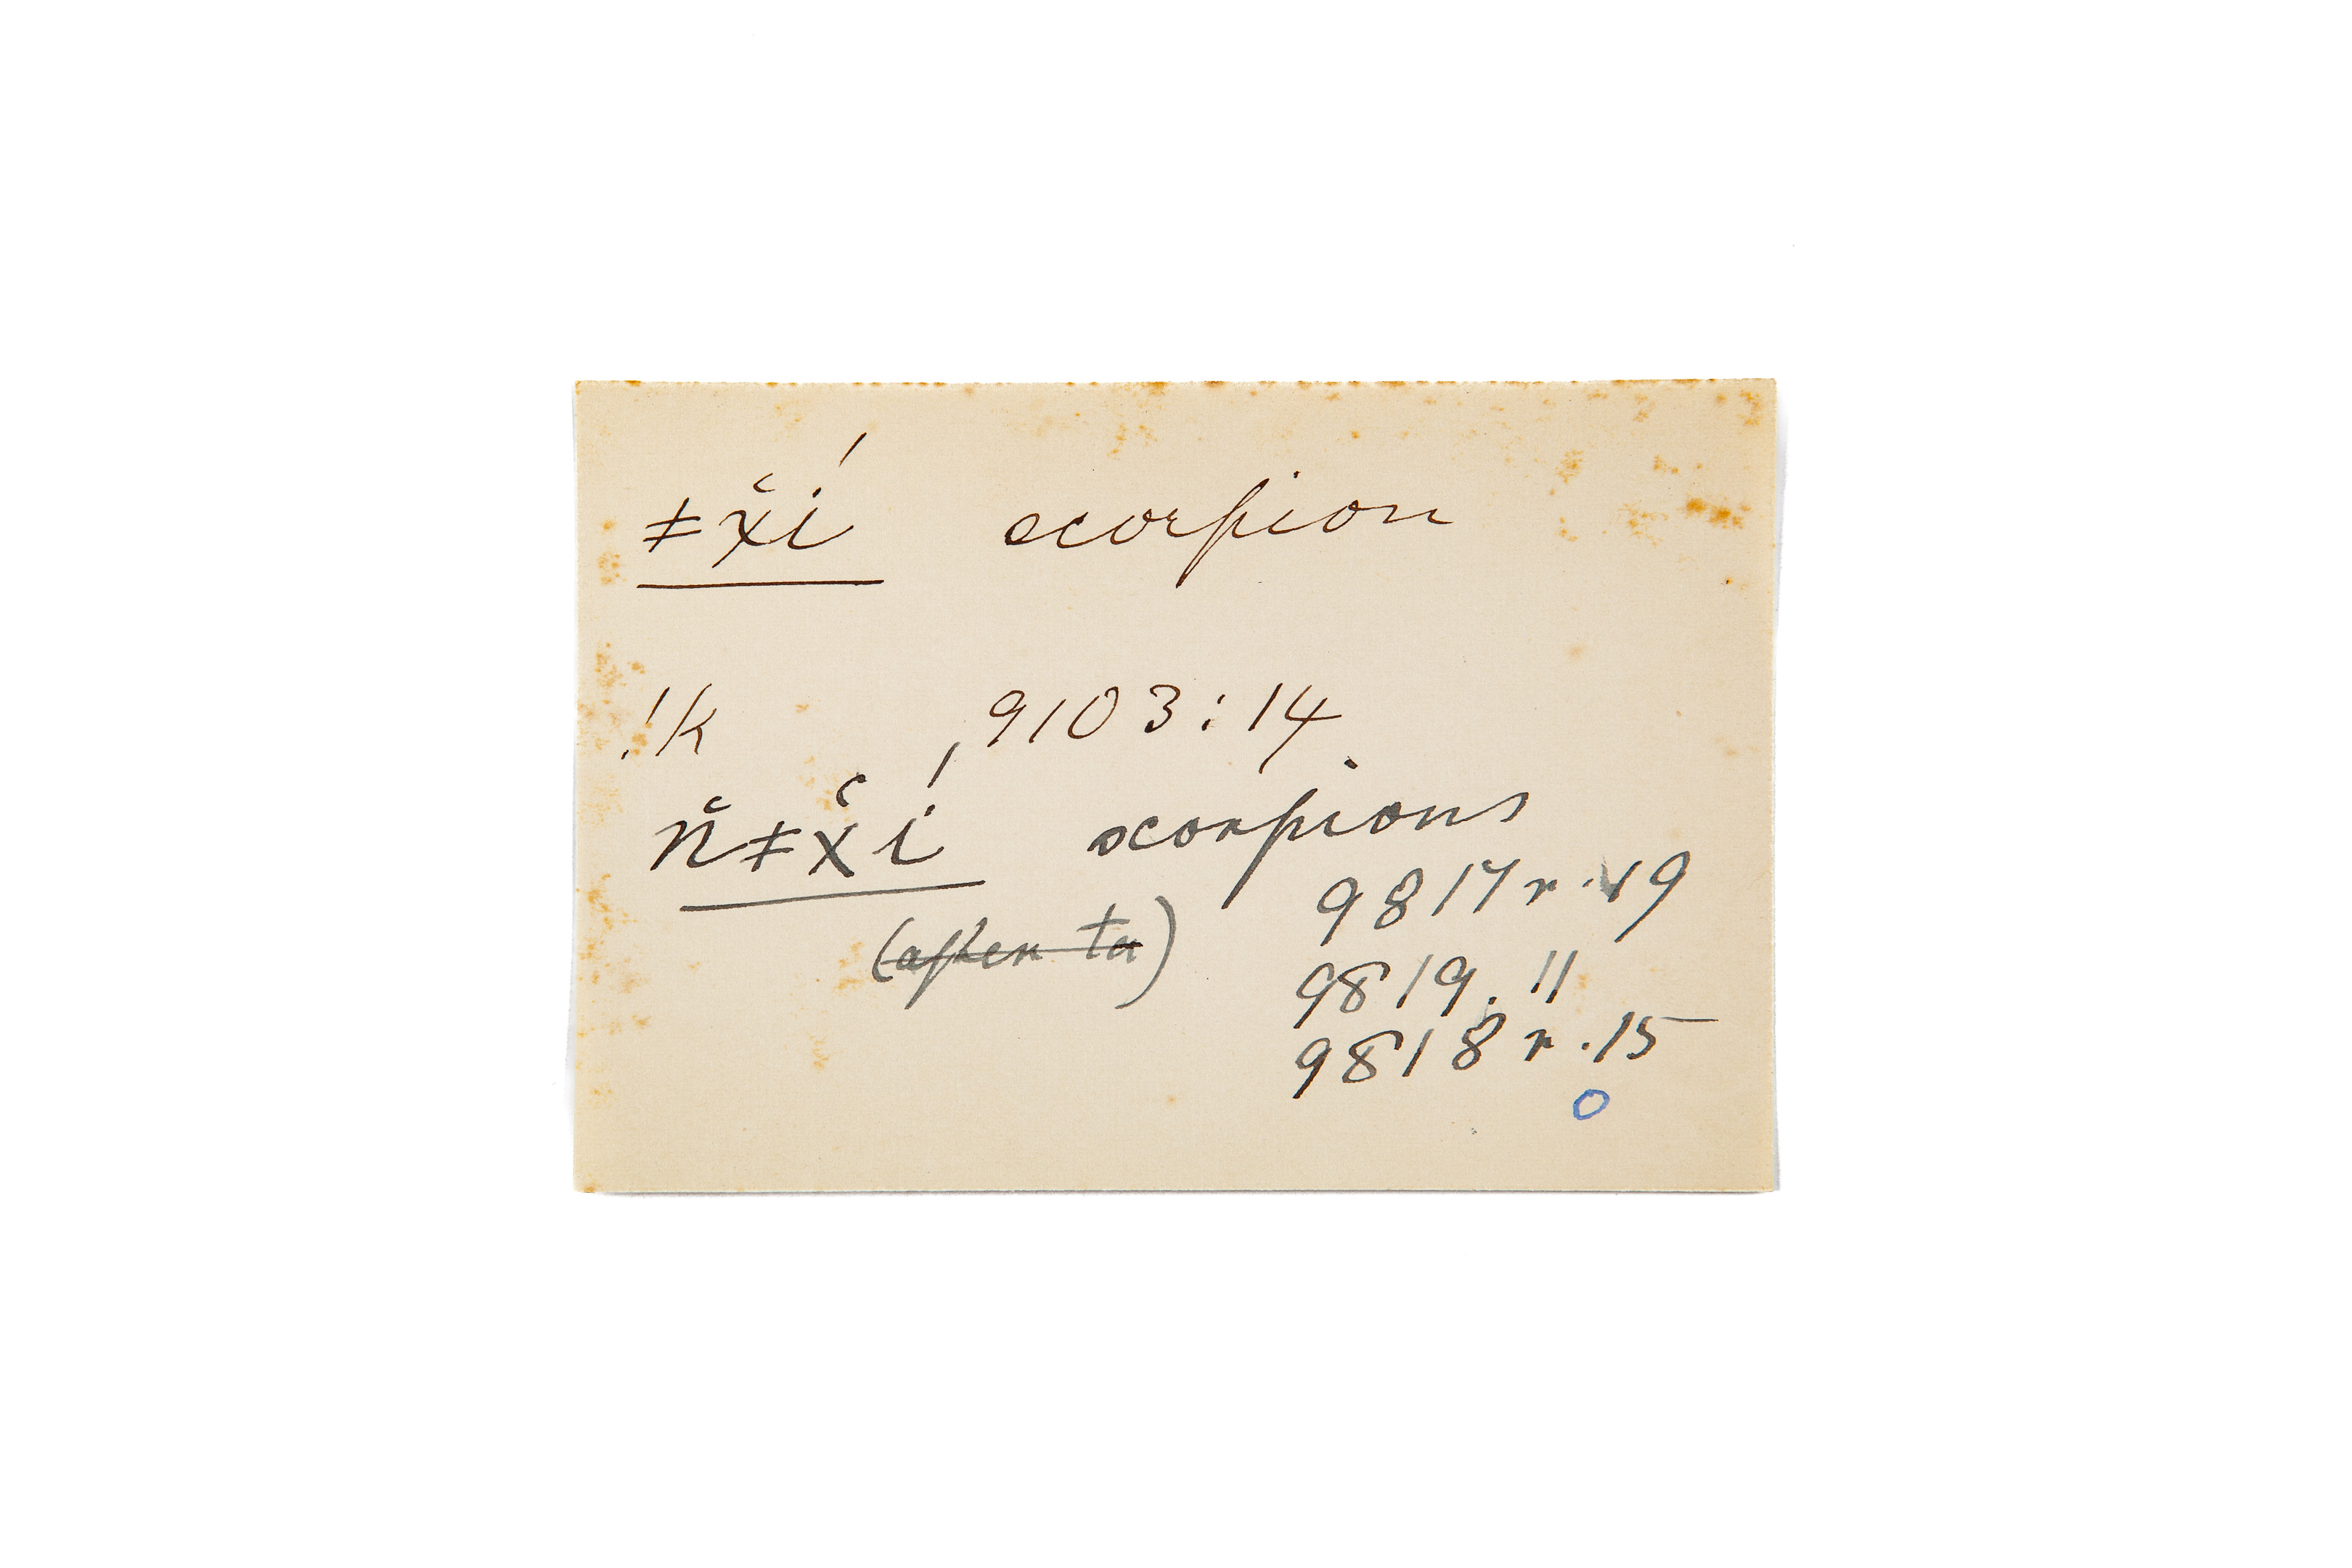 ǂx̆í scorpion
!k , 9103:14
n̆ǂx̆í scorpions
9817r. 19
(after ta)
9819. 11
9818r. 15
o